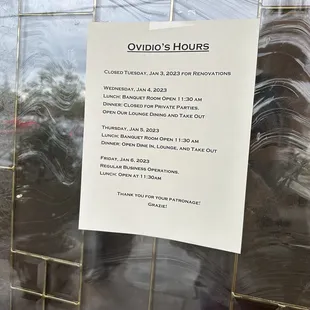 Ovidio's Hours
Closed Tuesday, Jan 3, 2023 for Renovations
Wednesday, Jan 4, 2023
Lunch: Banquet Room Open 11:30 am
Dinner: Closed for Private Parties.
Open Our Lounge Dining and Take Out
Thursday, Jan 5, 2023
Lunch: Banquet Room Open 11:30 am
Dinner: Open Dine In, Lounge, and Take Out
Friday, Jan 6, 2023
Regular Business Operations.
Lunch: Open at 11:30am
Thank you for your patronage!
Grazie!